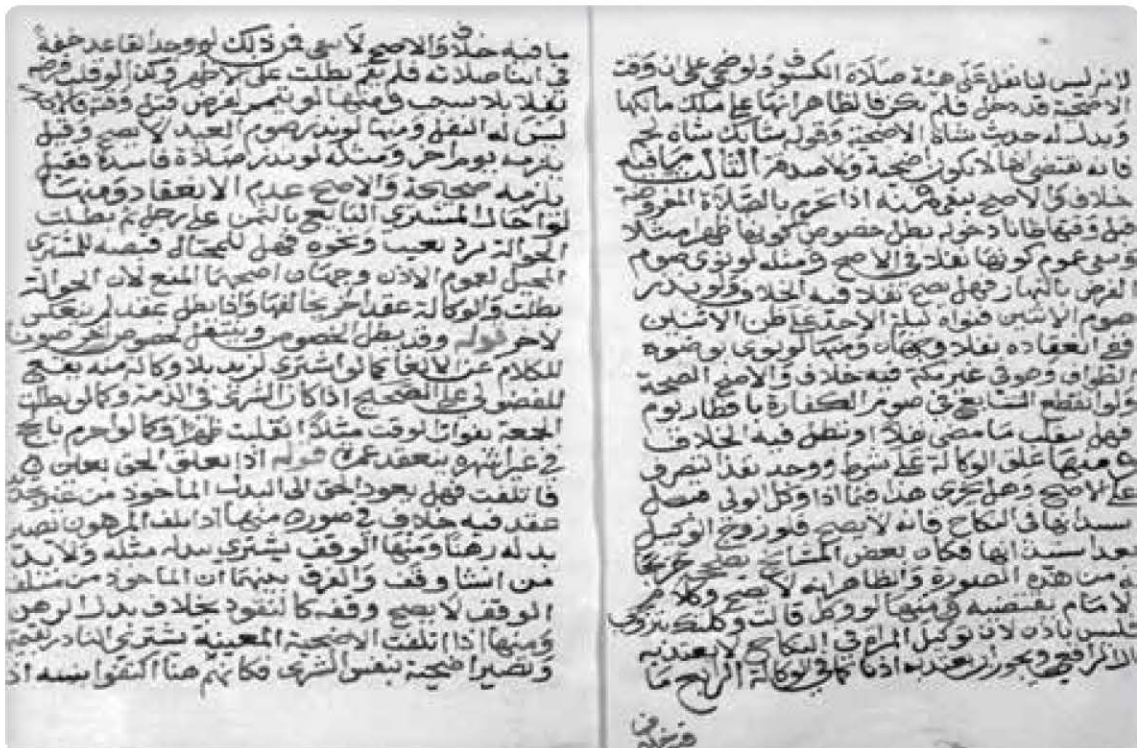 لانه ليس لنا نفل على هيئة صلاة الكسوف ولو ضحى على ان وقت
الاضحية قد دخل فلم يكن فالظاهر انها على ملك مالكها
ويدل له حديث شاة الاضحية وقوله شاتك شاة لحم
فانه يقتضى انها لا تكون اضحية ولا صدقة الثالث ما فيه
خلاف والاصح يبقى منه اذا تحرم بالصلاة المفروضة
قبل وقتها ظانا دخوله بطل خصوص كونها ظهرا مثلا
وبقى عموم كونها نفلا فى الاصح ومثله لو نوى صوم
الفرض بالنهار فهل يصح نفلا فيه الخلاف ولو نذر
صوم الاثنين فنواه ليلة الاحد على ظن الاثنين
ففى انعقاده نفلا وجهان ومنها لو نوى بوضوه
الطواف وهو فى غير مكة فيه خلاف والاصح الصحة
ولو انقطع التتابع فى صوم الكفارة بافطار يوم
فهل ينقلب ما مضى نفلا او تبطل فيه الخلاف
ومنها علق الوكالة على شرط ووجد نفذ التصرف
على الاصح وهل يجرى هذا فيما اذا وكل الولى قبل
استيذانها فى النكاح فانه لا يصح فلو زوج الوكيل
بعد استيذانها فكان بعض المشايخ يصحح تخريجا
له من هذه الصورة والظاهر انه لا يصح وكلام
الامام يقتضيه ومنها لو وكل قالت وكلتك بتزويجى
فليس باذن لان توكيل المراة فى النكاح لا يعتد به
قال الرافعى ويجوز ان يعتد به اذنا كما فى الوكالة الرابع ما
ما فيه خلاف والاصح لا يبقى فمن ذلك لو وجد القاعد خفة
فى اثناء صلاته فلم يقم بطلت على الاظهر ولم تكن الوقلب فرضه
نفلا بلا سبب ومنها لو تيمم لفرض قبل وقته فالاصح
ليس له النفل ومنها لو نذر صوم العيد لا يصح وقيل
يلزمه يوم اخر ومثله لو نذر صلاة فاسدة فقيل
يلزمه صحيحة والاصح عدم الانعقاد ومنها
لو احال المشترى البايع بالثمن على رجل ثم بطلت
الحوالة برد بعيب ونحوه فهل للمحتال قبضه للمشترى
المحيل لعموم الاذن وجهان اصحهما المنع لان الحوالة
بطلت والوكالة عقد اخر يخالفها واذا بطل عقد لم ينعكس
لاخر قوله وقد يبطل الخصوص وينتقل لخصوص اخر صونا
للكلام عن الالغا كما لو اشترى لزيد بلا وكالة منه يقع
للفضولى على الصحيح اذا كان الشرى فى الذمة وكما لو بطلت
الجمعة بفوات الوقت مثلا انقلبت ظهرا وكما لو احرم بالحج
فى غير اشهره ينعقد عمرة قوله اذا تعلق الحق بعين
فاتلفت فهل يعود الحق الى البدل الماخوذ من غير تجديد
عقد فيه خلاف فى صور منها اذا تلف المرهون تصير
بدله رهنا ومنها الوقف يشترى ببدله مثله ولا بد
من انشا وقف والفرق بينهما ان الماخوذ من متلف
الوقف لا يصح وقفه كالنقود بخلاف بدل الرهن
ومنها اذا اتلفت الاضحية المعينة يشترى الناذر بقيمتها
وتصير اضحية بنفس الشرى فكانهم هنا اكتفوا بنية اذ